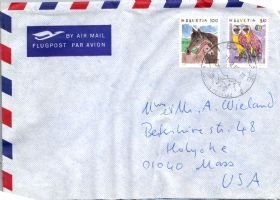 BY AIR MAIL
FLUGPOST PAR AVION
HELVETIA 100
HELVETIA 50
A. Wieland
Berkshire str. 48
Holyoke
01040 Mass
USA